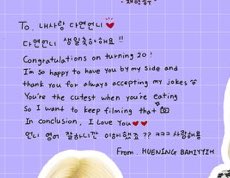 To. 내사랑 다연언니♥
다연언니 생일축하해요!!
Congratulations on turning 20!
I'm so happy to have you by my side and
thank you for always accepting my jokes
You're the cutest when you're eating
So I want to keep filming that
In conclusion, I Love You♥♥
언니 영어 잘하니깐 이해했죠?? ㅋㅋㅋ 사랑해용
From. HUENING BAHIYYIH